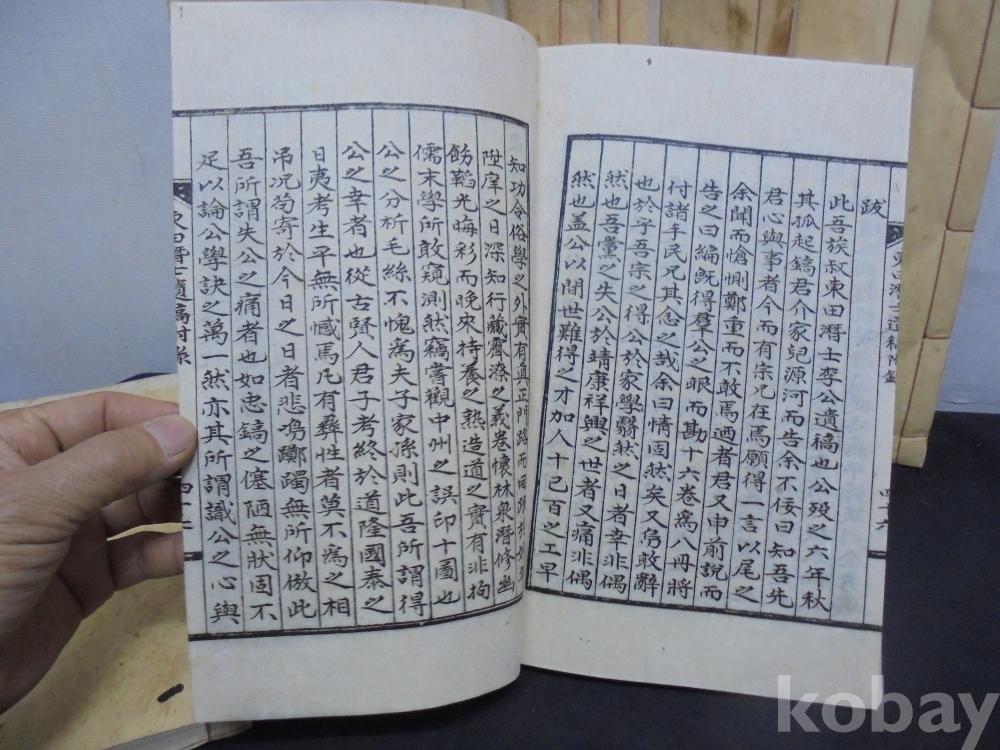 跋
此吾族叔東田潛士李公遺稿也公歿之六年秋
其孤起鎬君介家兒源河而告余不佞曰知吾先
君心與事者今而有宗兄在焉願得一言以尾之
余聞而愴惻鄭重而不敢焉迺者君又申前說而
告之曰編旣得羣公之眼而勘十六卷爲八冊將
付諸手民兄其念之哉余曰情固然矣又烏敢辭
也於乎吾宗之得公於家學翳然之日者幸非偶
然也吾黨之失公於靖康祥興之世者又痛非偶
然也盖公以間世難得之才加人十己百之工早
知功令俗學之外實有眞正門路而
陞庠之日深知行藏齊潦之義卷懷林泉潛修幽
飭韜光晦彩而晩來持養之熟造道之實有非拘
儒末學所敢窺測然竊嘗觀中州之誤印十圖也
公之分析毛絲不愧爲夫子家孫則此吾所謂得
公之幸者也從古賢人君子考終於道隆國泰之
日夷考生平無所憾焉凡有彛性者莫不爲之相
吊况苟寄於今日之日者悲鳴躑躅無所仰倣此
吾所謂失公之痛者也如忠鎬之僿陋無狀固不
足以論公學訣之萬一然亦其所謂識公之心與
東田潛士遺稿附錄
四十六
kobay